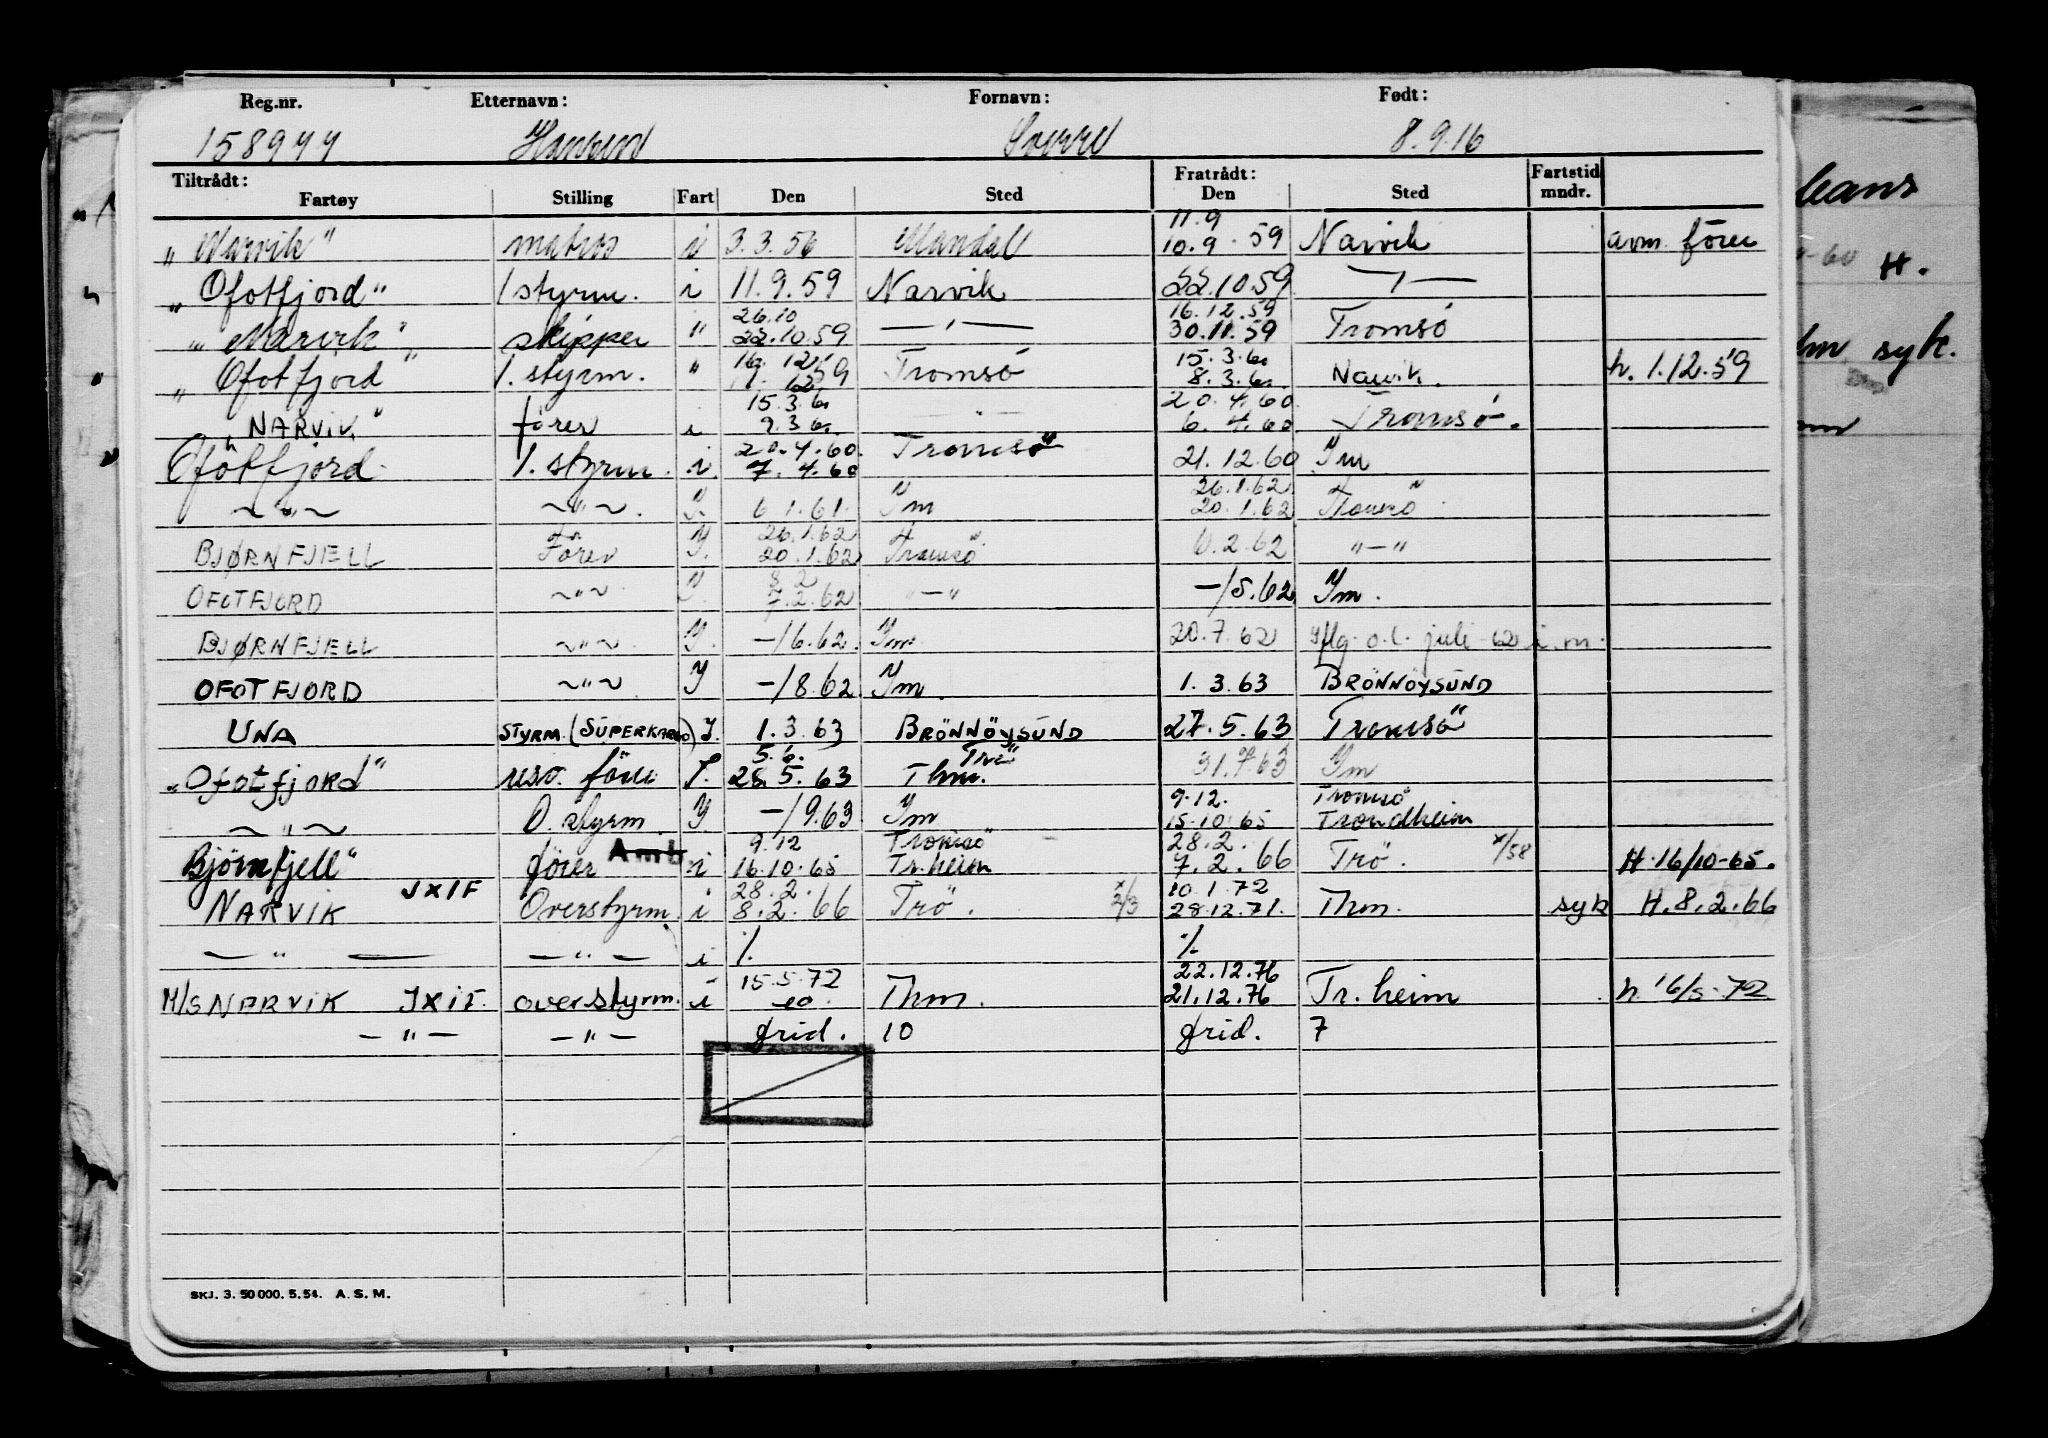 Reg.nr. Etternavn: Fornavn: Født:
158944 Hansen Sverre 8.9.16
Tiltrådt: Fratrådt: Fartstid
Fartøy Stilling Fart Den Sted Den Sted mndr.
11.9
„Narvik" matros i 3.3.56 Mandal 10.9.59 Narvik avm. förer
„Ofotfjord" 1 styrm. i 11.9.59 Narvik 22.10.59 —"—
26.10 16.12.59
„Narvik" skipper " 22.10.59 —"— 30.11.59 Tromsö
16.12.59 15.3.60
„Ofotfjord" 1. styrm. " 1.12.59 Tromsö 8.3.60 Narvik. h. 1.12.59
15.3.60 20.4.60
„NARVIK" förer i 9.3.60 —"— 6.4.60 Tromsö.
20.4.60.
Ofotfjord. 1. styrm. i. 7.4.60 Tromsö 21.12.60 Ym
26.1.62
~"~ ~"~. Y. 6.1.61. Ym 20.1.62 Tromsö
26.1.62
BJØRNFJELL Förer Y. 20.1.62 Tromsö 6.2.62 "—"
8.2
OFOTFJORD ~"~ Y. 7.2.62 "—" —/5.62 Ym.
BJØRNFJELL ~"~ Y. —/6.62. Ym. 20.7.62 Iflg. o.l. juli -62 i.m.
OFOTFJORD ~"~ Y —/8.62 Ym. 1.3.63 BRÖNNÖYSUND
UNA STYRM. (SUPERKARGO) I. 1.3.63 BRÖNNÖYSUND 27.5.63 Tromsö
5.6. Trö
„Ofotfjord" res. förer I. 28.5.63 Thm. 31.7.63 Ym
9.12. Tromsö
~"~ O. styrm. Y —/9.63 Ym 15.10.65 Trondheim
9.12 Tromsö 28.2.
Björnfjell" förer Amb i 16.10.65 Tr.heim 7.2.66 Trö. x/58 H. 16/10-65.
JXIF 28.2. 10.1.72
NARVIK Overstyrm. i 8.2.66 Trö. x 2/3 28.12.71. Thm. syk H. 8.2.66
— " — — " — i %. %.
15.5.72 22.12.76
M/S NARVIK JXIF. overstyrm. i eo. Thm. 21.12.76 Tr.heim h. 16/5-72
— " — — " — grid. 10 grid. 7
SKJ. 3. 50 000. 5. 54. A. S. M.
H.
syk.